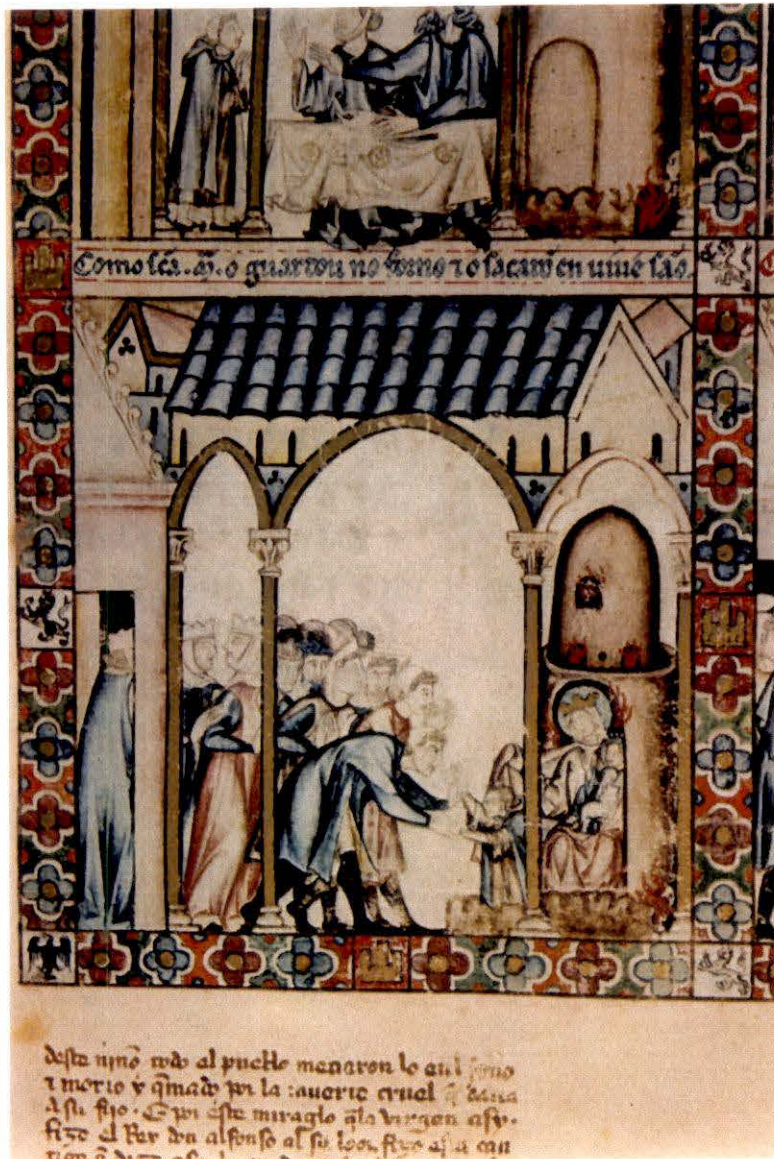 Como s̄c̄a. m̄. o guardou no forno ⁊ o sacarō en uiuȩ são.
deste nino todo al pueblo metiaron lo enl forno
⁊ morio y q̄mado por la muerte cruel q̄ daua
A su fijo. E por este miraglo q̄ la virgen asy.
fizo el Rey don alfonso al su loor fizo esta can